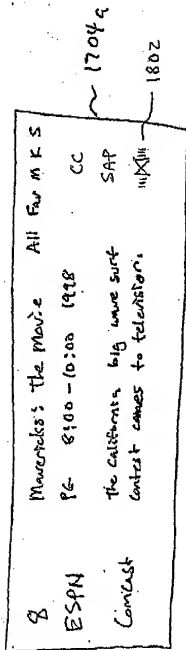 8 Mavericks: the Movie All Fav M K S
ESPN PG 8:00-10:00 1998 CC
Comcast The California big wave surf SAP
contest comes to television.
1704a
1802